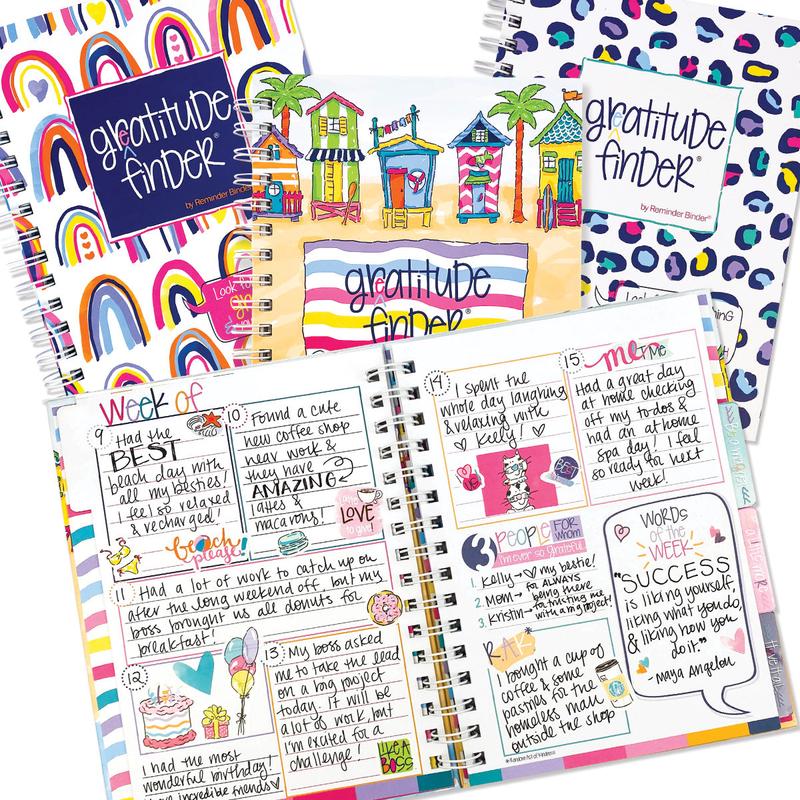 gratitude
finder®
by Reminder Binder®
gratitude
finder®
gratitude
finder®
by Reminder Binder®
Week of
9
Had the
BEST
beach day with
all my besties!
I feel so relaxed
& recharged!
beach
please!
10
Found a cute
new coffee shop
near work &
they have
AMAZING
lattes &
macarons!
LOVE
11
Had a lot of work to catch up on
after the long weekend off but my
boss brought us all donuts for
breakfast!
12
I had the most
wonderful birthday!
have incredible friends
13
My boss asked
me to take the lead
on a big project
today. It will be
a lot of work, but
I'm excited for a
challenge!
LIKE A
BOSS
14
I spent the
whole day laughing
& relaxing with
Kelly!
BEST
15
me TIME
Had a great day
at home checking
off my to-dos &
had an at home
spa day! I feel
so ready for next
week!
3 PEOPLE FOR
whom
I'm ever so grateful
1. Kelly → my bestie!
2. Mom → for ALWAYS
being there
3. Kristin → for trusting me
with a my project!
R.A.K*
I bought a cup of
coffee & some
pastries for the
homeless man
outside the shop
*Random Act of Kindness
WORDS
of the
WEEK
"SUCCESS
is liking yourself,
liking what you do,
& liking how you
do it."
- Maya Angelou